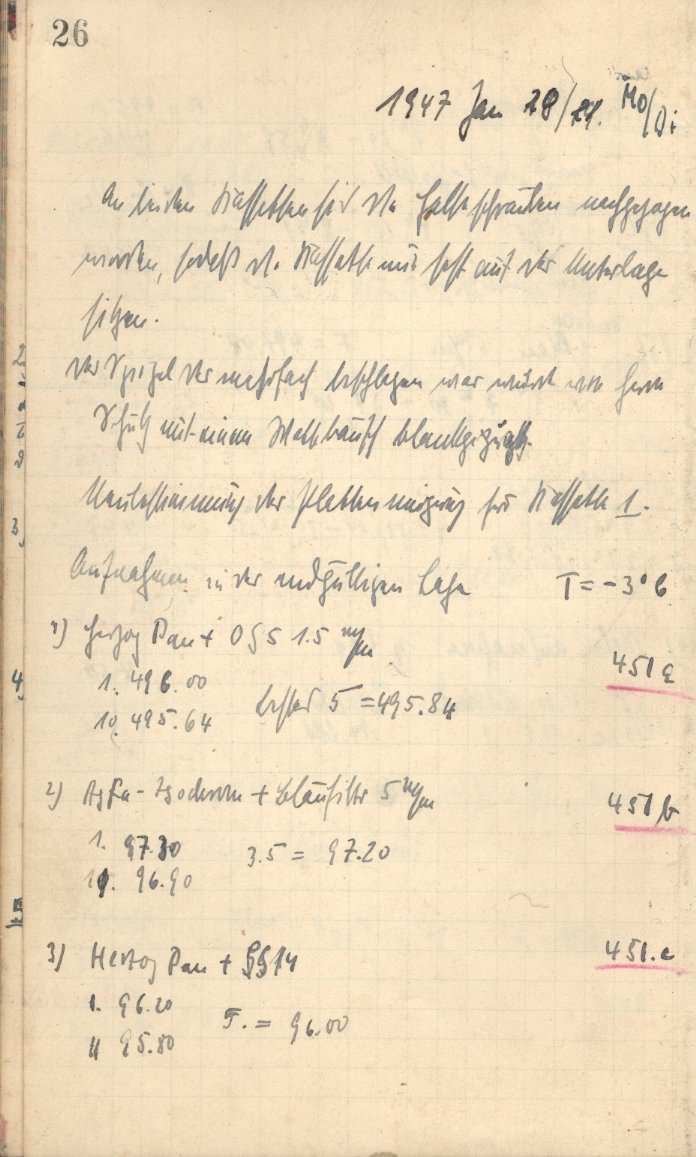 26
1947 Jan 28/29. Mo/Di
An beiden Kassetten sind die Halteschrauben nachgezogen
worden, sodaß die Kassette nun fest auf der Unterlage
sitzen.
Der Spiegel der mehrfach beschlagen war wurde von Herrn
Schütz mit einem Wattebausch blankgeputzt.
Neubestimmung der Plattenneigung für Kassette 1.
Aufnahmen in der endgültigen Lage T = -3° C
1) Herzog Pan + OG5 1.5 m/m 451 a
1. 496.00
10. 495.64 bester 5 = 495.84
2) Agfa-Isochrom + Blaufilter 5 m/m 451 b
1. 97.30 3.5 = 97.20
96.90
3) Herzog Pan + 451.c
1. 96.20
11 95.80 5. = 96.00